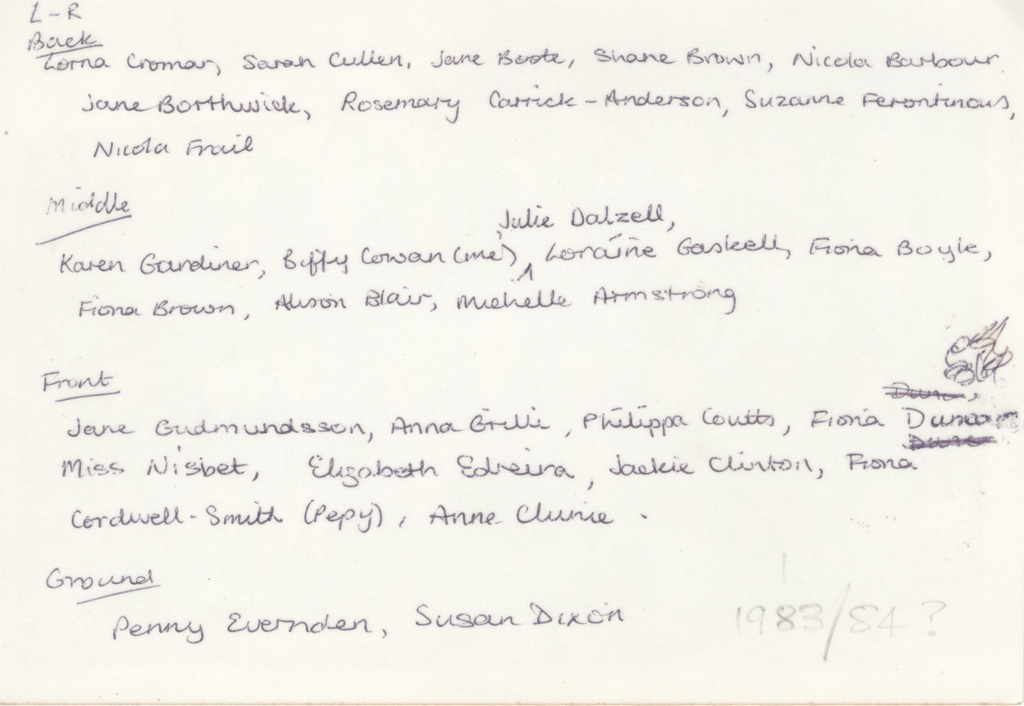 L-R
Back
Lorna Cromar, Sarah Cullen, Jane Boote, Shane Brown, Nicola Barbour
Jane Borthwick, Rosemary Carrick-Anderson, Suzanne Ferontinous,
Nicola Frail
Middle
Julie Dalzell,
Karen Gardiner, Biffy Cowan (me), Lorraine Gaskell, Fiona Boyle,
Fiona Brown, Alison Blair, Michelle Armstrong
Front
Jane Gudmundsson, Anna Grilli, Philippa Coutts, Fiona Duncan
Miss Nisbet, Elizabeth Edreira, Jackie Clinton, Fiona
Cordwell-Smith (Pepy), Anne Clunie.
Ground
Penny Evernden, Susan Dixon
1983/84?